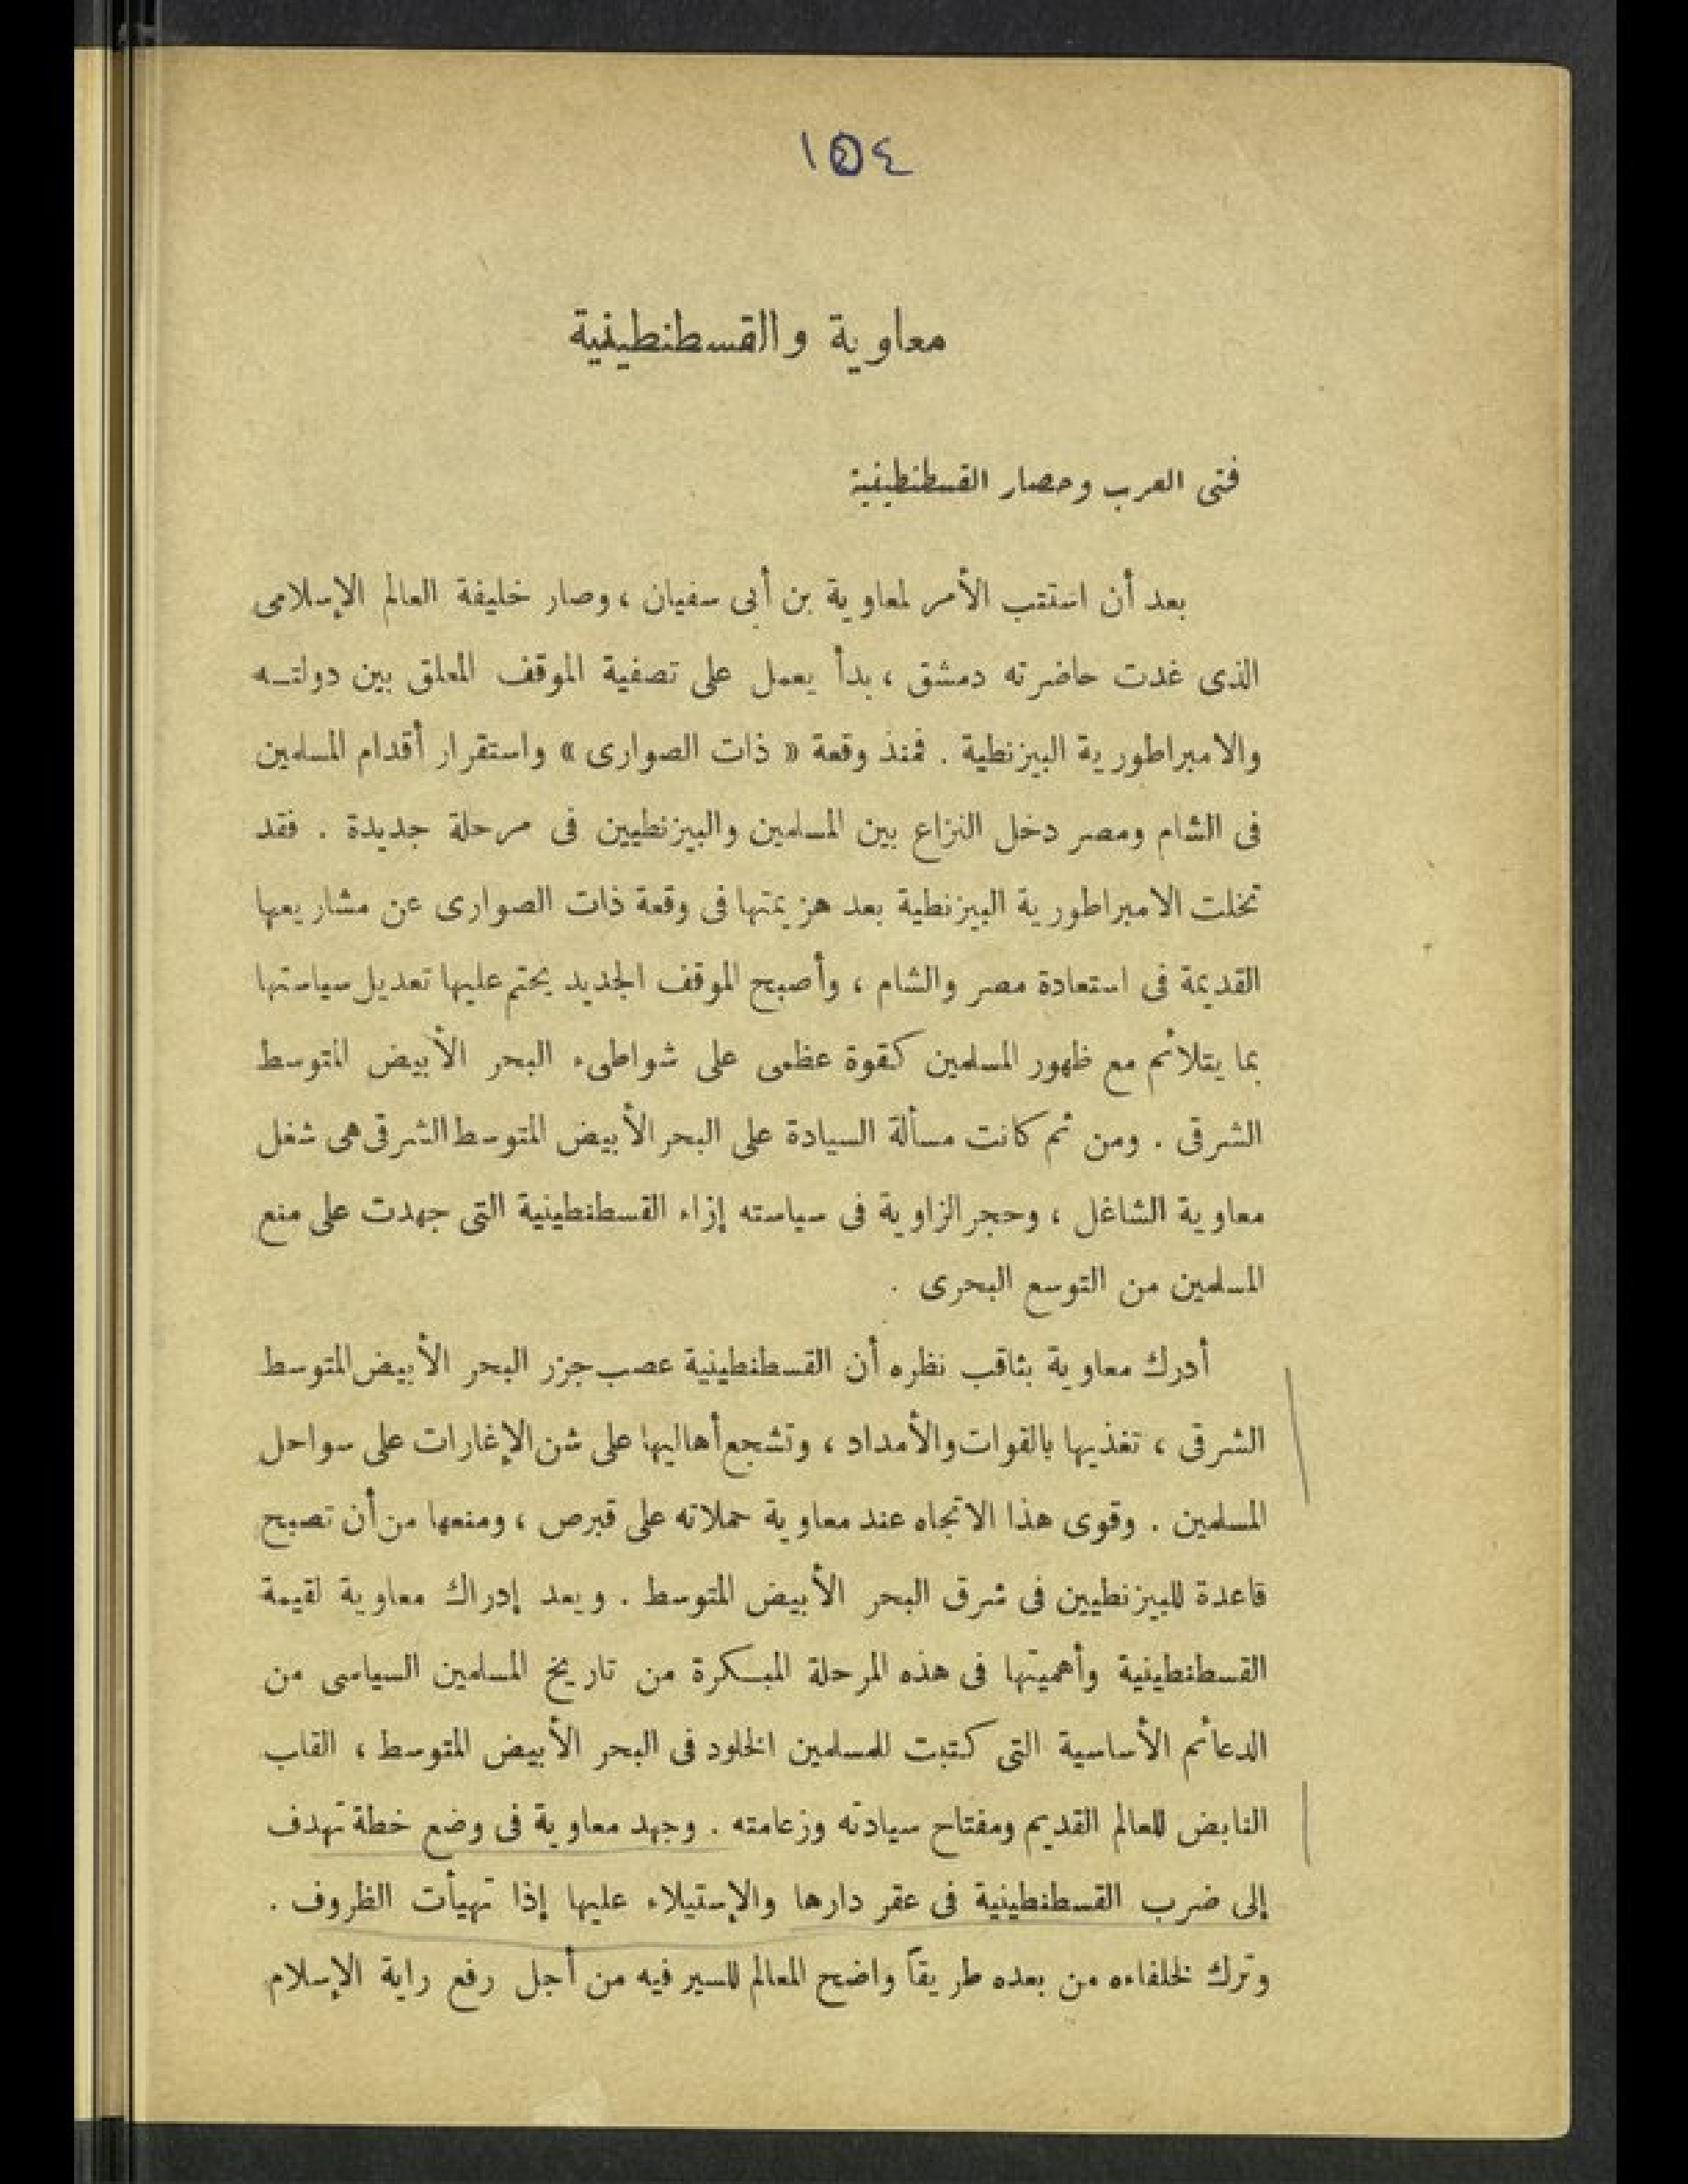 ١٥٤
معاوية والقسطنطينية
فتى العرب وحصار القسطنطينية
بعد أن استتب الأمر لمعاوية بن أبى سفيان ، وصار خليفة العالم الإسلامى
الذى غدت حاضرته دمشق ، بدأ يعمل على تصفية الموقف المعلق بين دولتـه
والامبراطورية البيزنطية . فمنذ وقعة « ذات الصوارى » واستقرار أقدام المسلمين
فى الشام ومصر دخل النزاع بين المسلمين والبيزنطيين فى مرحلة جديدة . فقد
تخلت الامبراطورية البيزنطية بعد هزيمتها فى وقعة ذات الصوارى عن مشاريعها
القديمة فى استعادة مصر والشام ، وأصبح الموقف الجديد يحتم عليها تعديل سياستها
بما يتلائم مع ظهور المسلمين كقوة عظمى على شواطىء البحر الأبيض المتوسط
الشرقى . ومن ثم كانت مسألة السيادة على البحر الأبيض المتوسط الشرقى هى شغل
معاوية الشاغل ، وحجر الزاوية فى سياسته إزاء القسطنطينية التى جهدت على منع
المسلمين من التوسع البحرى .
أدرك معاوية بثاقب نظره أن القسطنطينية عصب جزر البحر الأبيض المتوسط
الشرقى ، تغذيها بالقوات والأمداد ، وتشجع أهاليها على شن الإغارات على سواحل
المسلمين . وقوى هذا الاتجاه عند معاوية حملاته على قبرص ، ومنعها من أن تصبح
قاعدة للبيزنطيين فى شرق البحر الأبيض المتوسط . ويعد إدراك معاوية لقيمة
القسطنطينية وأهميتها فى هذه المرحلة المبـكرة من تاريخ المسلمين السياسى من
الدعائم الأساسية التى كتبت للمسلمين الخلود فى البحر الأبيض المتوسط ، القلب
النابض للعالم القديم ومفتاح سيادته وزعامته . وجهد معاوية فى وضع خطة تهدف
إلى ضرب القسطنطينية فى عقر دارها والإستيلاء عليها إذا تهيأت الظروف .
وترك لخلفاءه من بعده طريقاً واضح المعالم للسير فيه من أجل رفع راية الإسلام